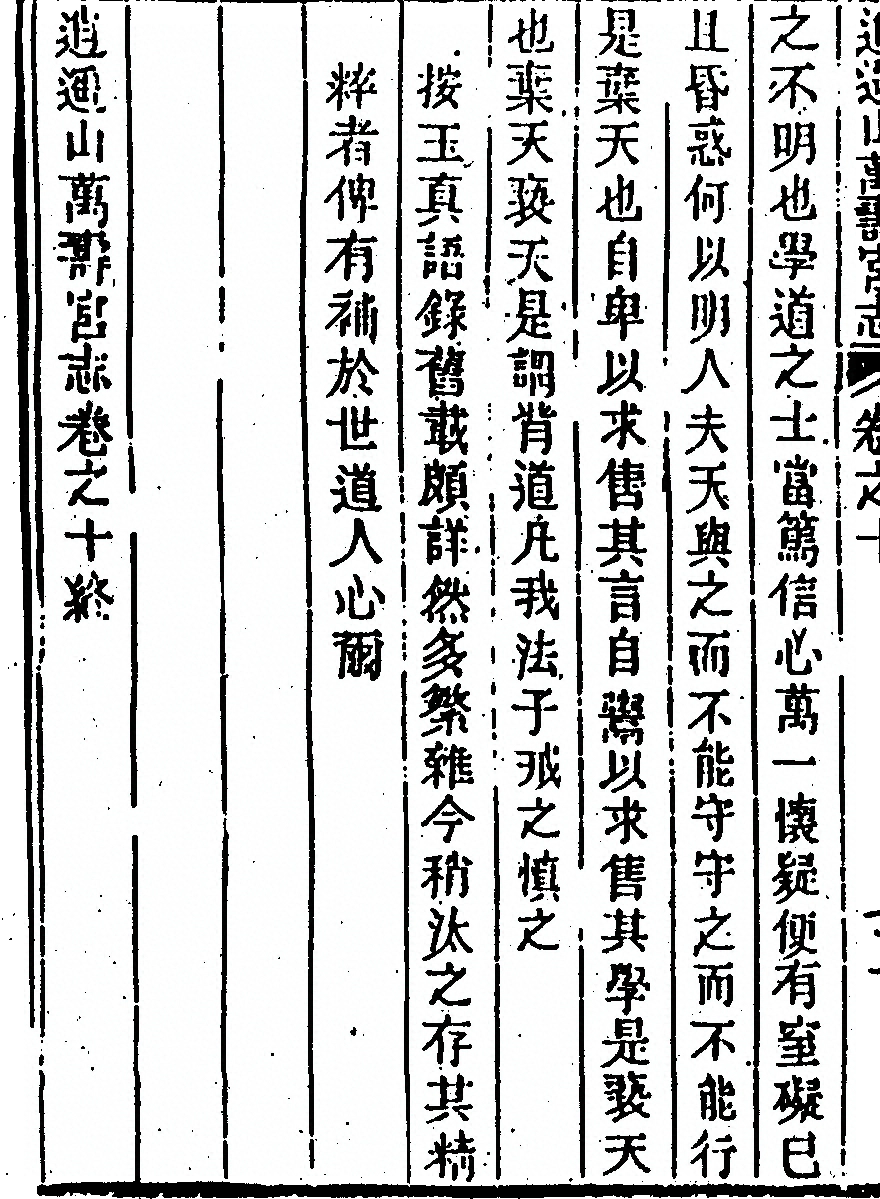 逍遙山萬壽宮志 卷之十
之不明也學道之士當篤信心萬一懷疑便有窒礙巳
且昏惑何以明人夫天與之而不能守守之而不能行
是棄天也自卑以求售其言自鬻以求售其學是褻天
也棄天褻天是謂背道凡我法子戒之慎之
按玉真語錄舊載頗詳然多繁雜今稍汰之存其精
粹者俾有補於世道人心爾
逍遙山萬壽宮志卷之十終